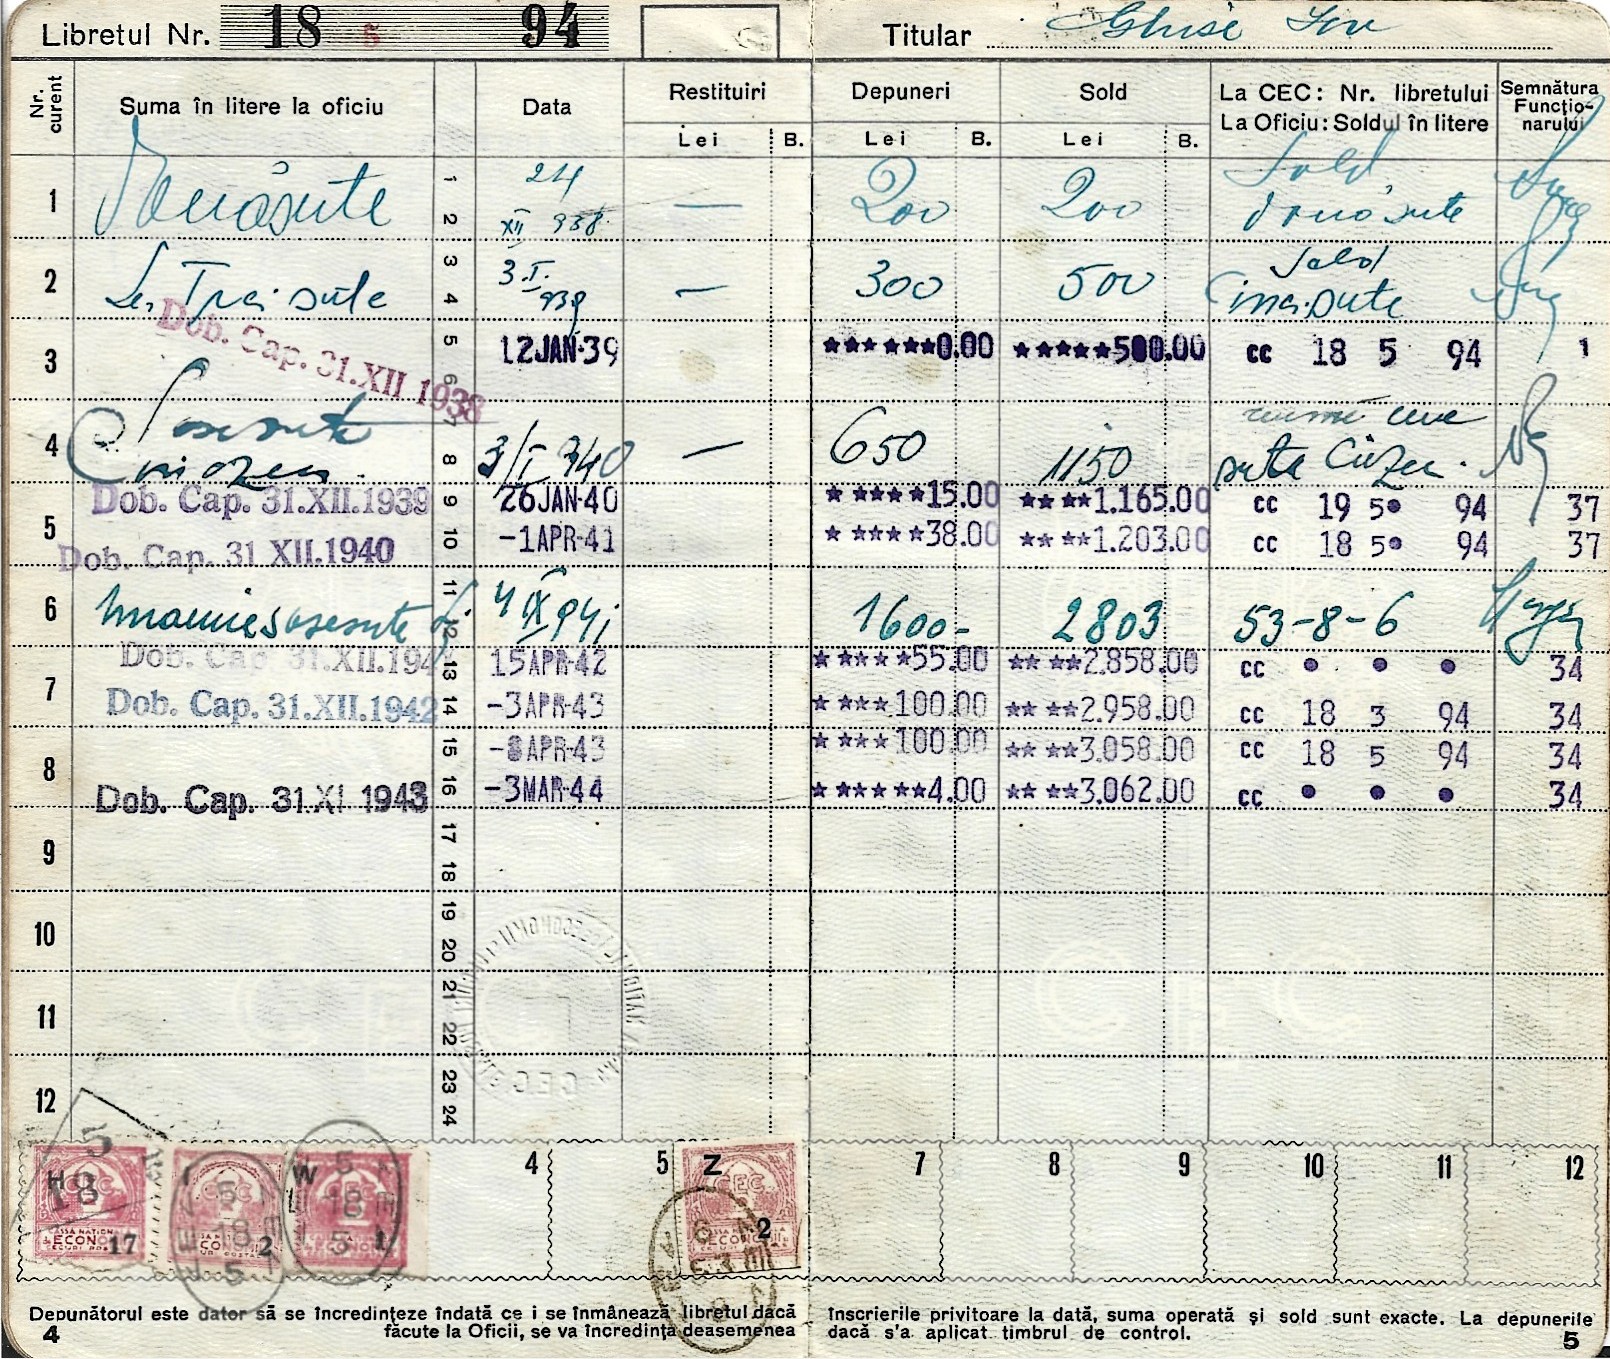 Libretul Nr. 18 5 94 Titular Ghise Ion
Nr. curent Suma în litere la oficiu Data Restituiri Depuneri Sold La CEC: Nr. libretului Semnătura
La Oficiu: Soldul în litere Funcțio-
narului
Lei B. Lei B. Lei B.
1 Două sute 1 2 24 XII 938 — 200 200 Sold două sute
2 Lei Trei sute 3 4 3.I.939 — 300 500 Sold Cinci sute
Dob. Cap. 31.XII 1938
3 5 6 12 JAN·39 ★★★★★★0.00 ★★★★★500.00 cc 18 5 94 1
4 Șase sute Cincizeci 7 8 3/I 940 — 650 1150 sute
Dob. Cap. 31.XII.1939 9 26 JAN·40 ★ ★★★★15.00 ★★ ★★1.165.00 cc 19 5• 94 37
5
Dob. Cap. 31 XII.1940 10 -1 APR·41 ★ ★★★★38.00 ★★ ★★1.203.00 cc 18 5• 94 37
6 Una mie șase sute 11 12 4 IX 941 1600- 2803 53-8-6
Dob. Cap 31.XII.194 13 15 APR·42 ★★★★★55.00 ★★ ★★2.858.00 cc • • • 34
7
Dob. Cap. 31.XII.1942 14 -3 APR·43 ★ ★★★100.00 ★★ ★★2.958.00 cc 18 3 94 34
15 -8 APR·43 ★ ★★★100.00 ★★ ★★3.058.00 cc 18 5 94 34
8
Dob. Cap. 31.XI 1943 16 -3 MAR·44 ★★★★★★4.00 ★★ ★★3.062.00 cc • • • 34
9 17 18
10 19 20
11 21 22
12 23 24
CEC
5 H 18 17 CEC 5 18 5 2 W 5 18 5 1 4 5 Z CEC 2 7 8 9 10 11 12
Depunătorul este dator să se încredințeze îndată ce i se înmânează libretul dacă înscrierile privitoare la dată, suma operată și sold sunt exacte. La depunerile
4 făcute la Oficii, se va încredința deasemenea dacă s'a aplicat timbrul de control. 5